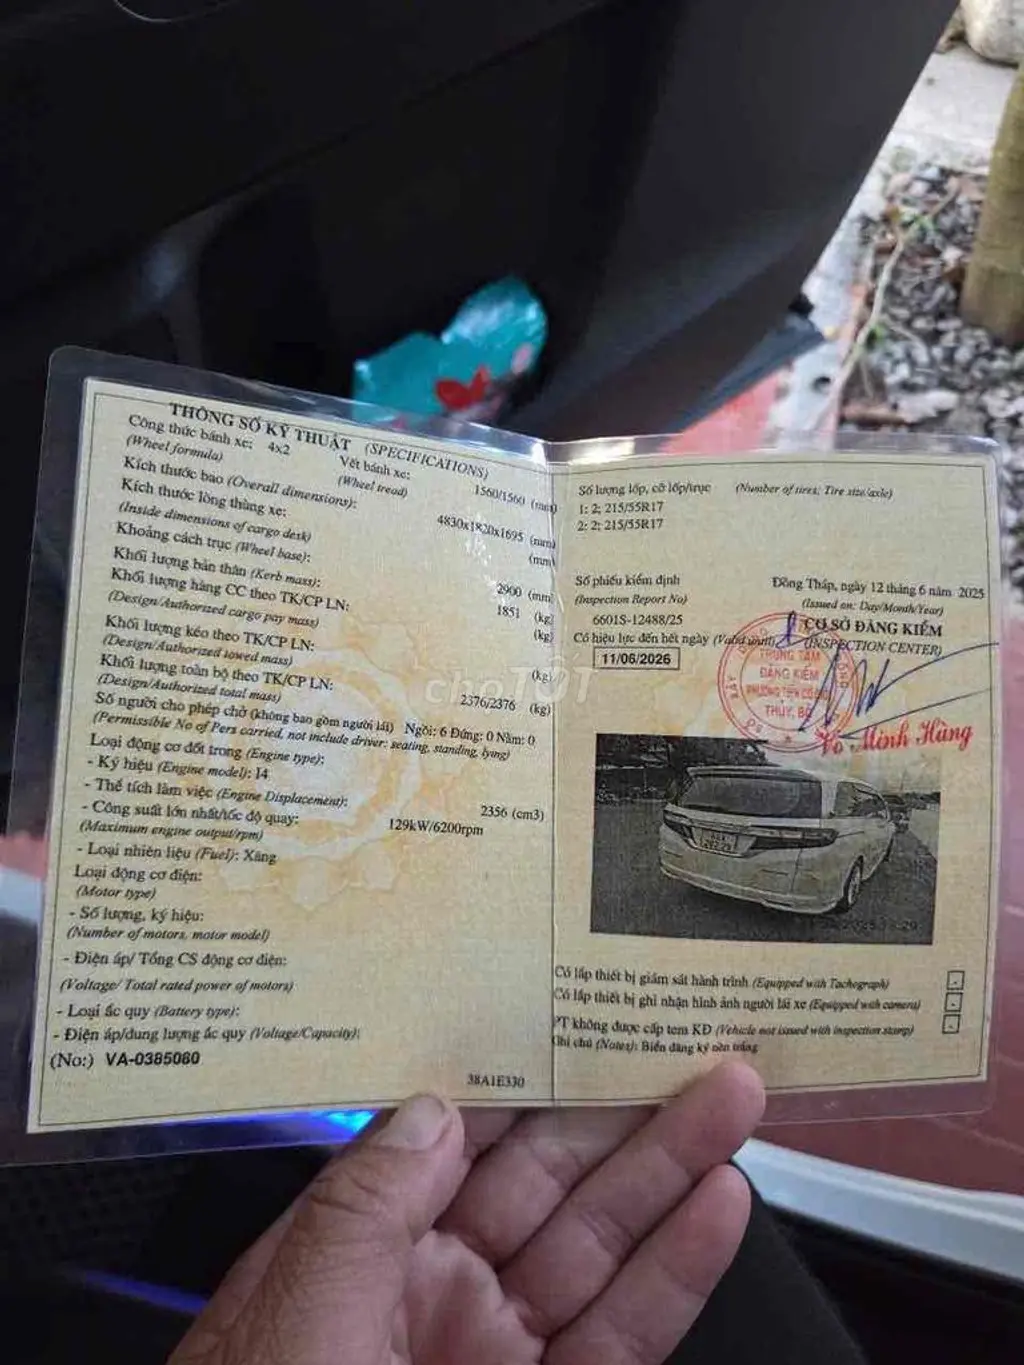 THÔNG SỐ KỸ THUẬT (SPECIFICATIONS)
Công thức bánh xe: 4x2 Vết bánh xe: 1560/1560 (mm)
(Wheel formula) (Wheel tread)
Kích thước bao (Overall dimensions): 4830x1820x1695 (mm)
Kích thước lòng thùng xe: (mm)
(Inside dimensions of cargo desk)
Khoảng cách trục (Wheel base): 2900 (mm)
Khối lượng bản thân (Kerb mass): 1851 (kg)
Khối lượng hàng CC theo TK/CP LN: (kg)
(Design/Authorized cargo pay mass)
Khối lượng kéo theo TK/CP LN: (kg)
(Design/Authorized towed mass)
Khối lượng toàn bộ theo TK/CP LN: 2376/2376 (kg)
(Design/Authorized total mass)
Số người cho phép chở (không bao gồm người lái) Ngồi: 6 Đứng: 0 Nằm: 0
(Permissible No of Pers carried, not include driver: seating, standing, lying)
Loại động cơ đốt trong (Engine type):
- Ký hiệu (Engine model): I4
- Thể tích làm việc (Engine Displacement): 2356 (cm3)
- Công suất lớn nhất/tốc độ quay: 129kW/6200rpm
(Maximum engine output/rpm)
- Loại nhiên liệu (Fuel): Xăng
Loại động cơ điện:
(Motor type)
- Số lượng, ký hiệu:
(Number of motors, motor model)
- Điện áp/ Tổng CS động cơ điện:
(Voltage/ Total rated power of motors)
- Loại ắc quy (Battery type):
- Điện áp/dung lượng ắc quy (Voltage/Capacity):
(No:) VA-0385060
38A1E330
Số lượng lốp, cỡ lốp/trục (Number of tires; Tire size/axle)
1: 2; 215/55R17
2: 2; 215/55R17
Số phiếu kiểm định
(Inspection Report No)
6601S-12488/25
Có hiệu lực đến hết ngày (Valid until)
11/06/2026
Đồng Tháp, ngày 12 tháng 6 năm 2025
(Issued on: Day/Month/Year)
CƠ SỞ ĐĂNG KIỂM
(INSPECTION CENTER)
TRUNG TÂM
ĐĂNG KIỂM
PHƯƠNG TIỆN CƠ GIỚI
THỦY, BỘ
Võ Minh Hùng
choTỐT
Có lắp thiết bị giám sát hành trình (Equipped with Tachograph) -
Có lắp thiết bị ghi nhận hình ảnh người lái xe (Equipped with camera) -
PT không được cấp tem KĐ (Vehicle not issued with inspection stamp) -
Ghi chú (Notes): Biển đăng ký nền trắng